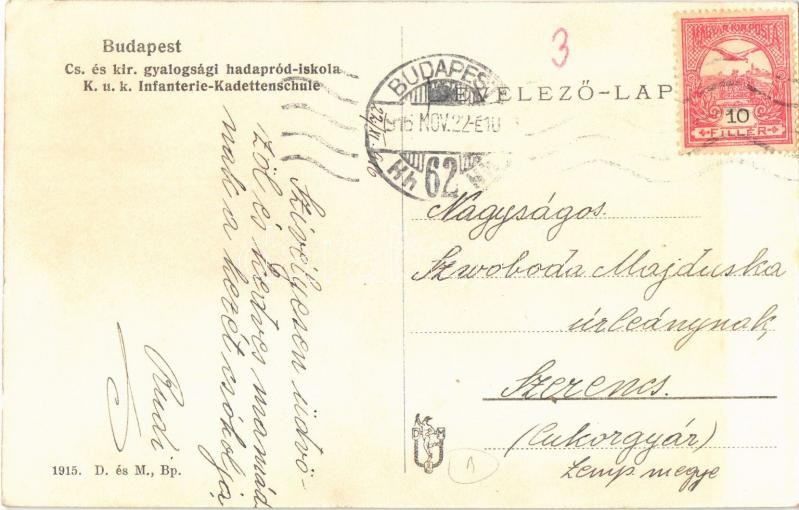 Budapest
Cs. és kir. gyalogsági hadapród-iskola
K. u. k. Infanterie-Kadettenschule
3
LEVELEZŐ-LAP
MAGYAR KIR. POSTA
10
FILLÉR
BUDAPEST
915 NOV. 22-E10
62
Szivélyesen üdvö-
zöl és kedves mamád-
nak a kezét csókolja
Rudi
Nagyságos
Szwoboda Majduska
úrleánynak
Szerencs.
(Cukorgyár)
Zemp. megye
D M
1915. D. és M., Bp.